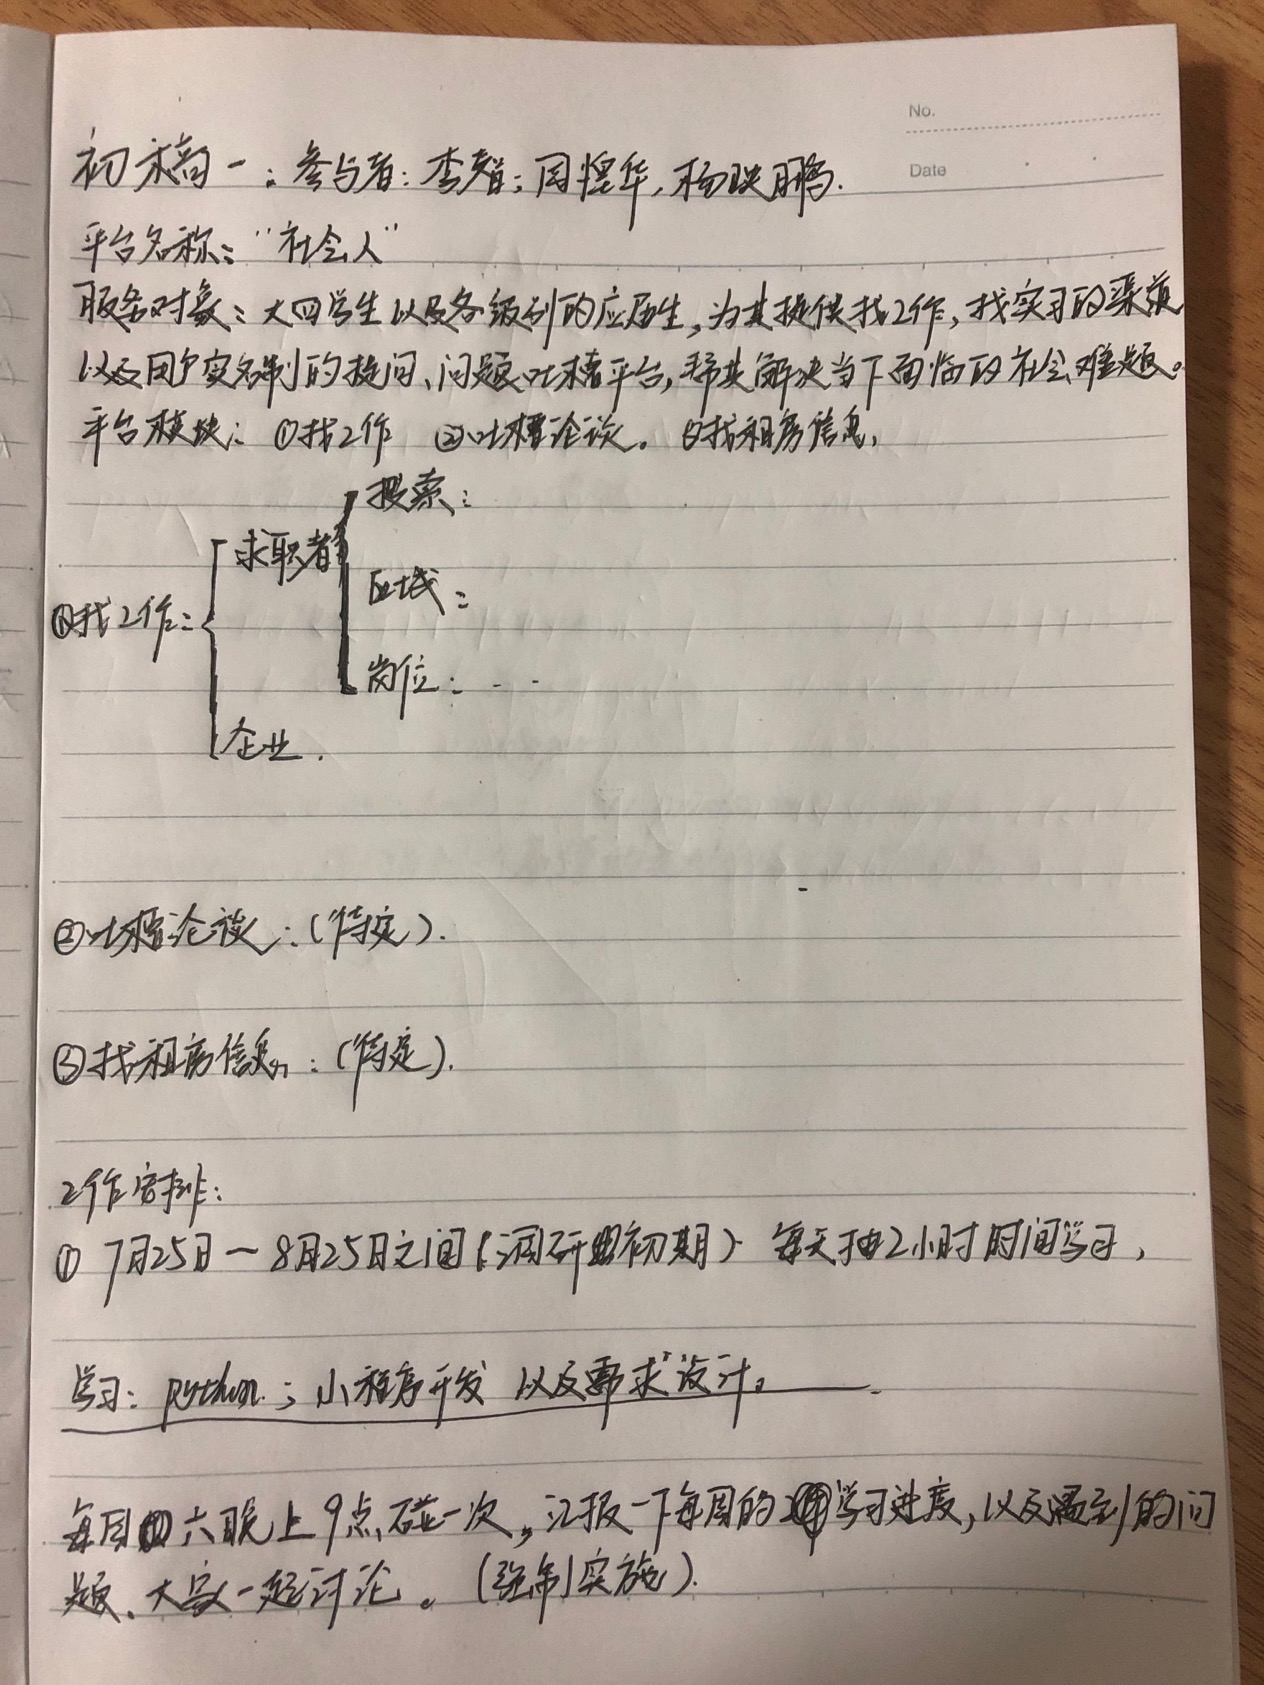 No.
Date
初稿一：参与者：李智；周煜华，杨映鹏.
平台名称：“社会人”
服务对象：大四学生以及各级别的应届生，为其提供找工作，找实习的渠道
以及用户实名制的提问、问题吐槽平台，帮其解决当下面临的社会难题。
平台模块：①找工作 ②吐槽论谈。③找租房信息，
搜索：
求职者
区域：
①找工作：
岗位：- -
企业.
②吐槽论谈：(待定).
③找租房信息：(待定).
工作安排：
① 7月25日～8月25日之间(调研初期) 每天抽2小时时间学习，
学习：python；小程序开发 以及需求设计。
每周六晚上9点碰一次，汇报一下每周的学习进度，以及遇到的问
题、大家一起讨论。(强制实施).